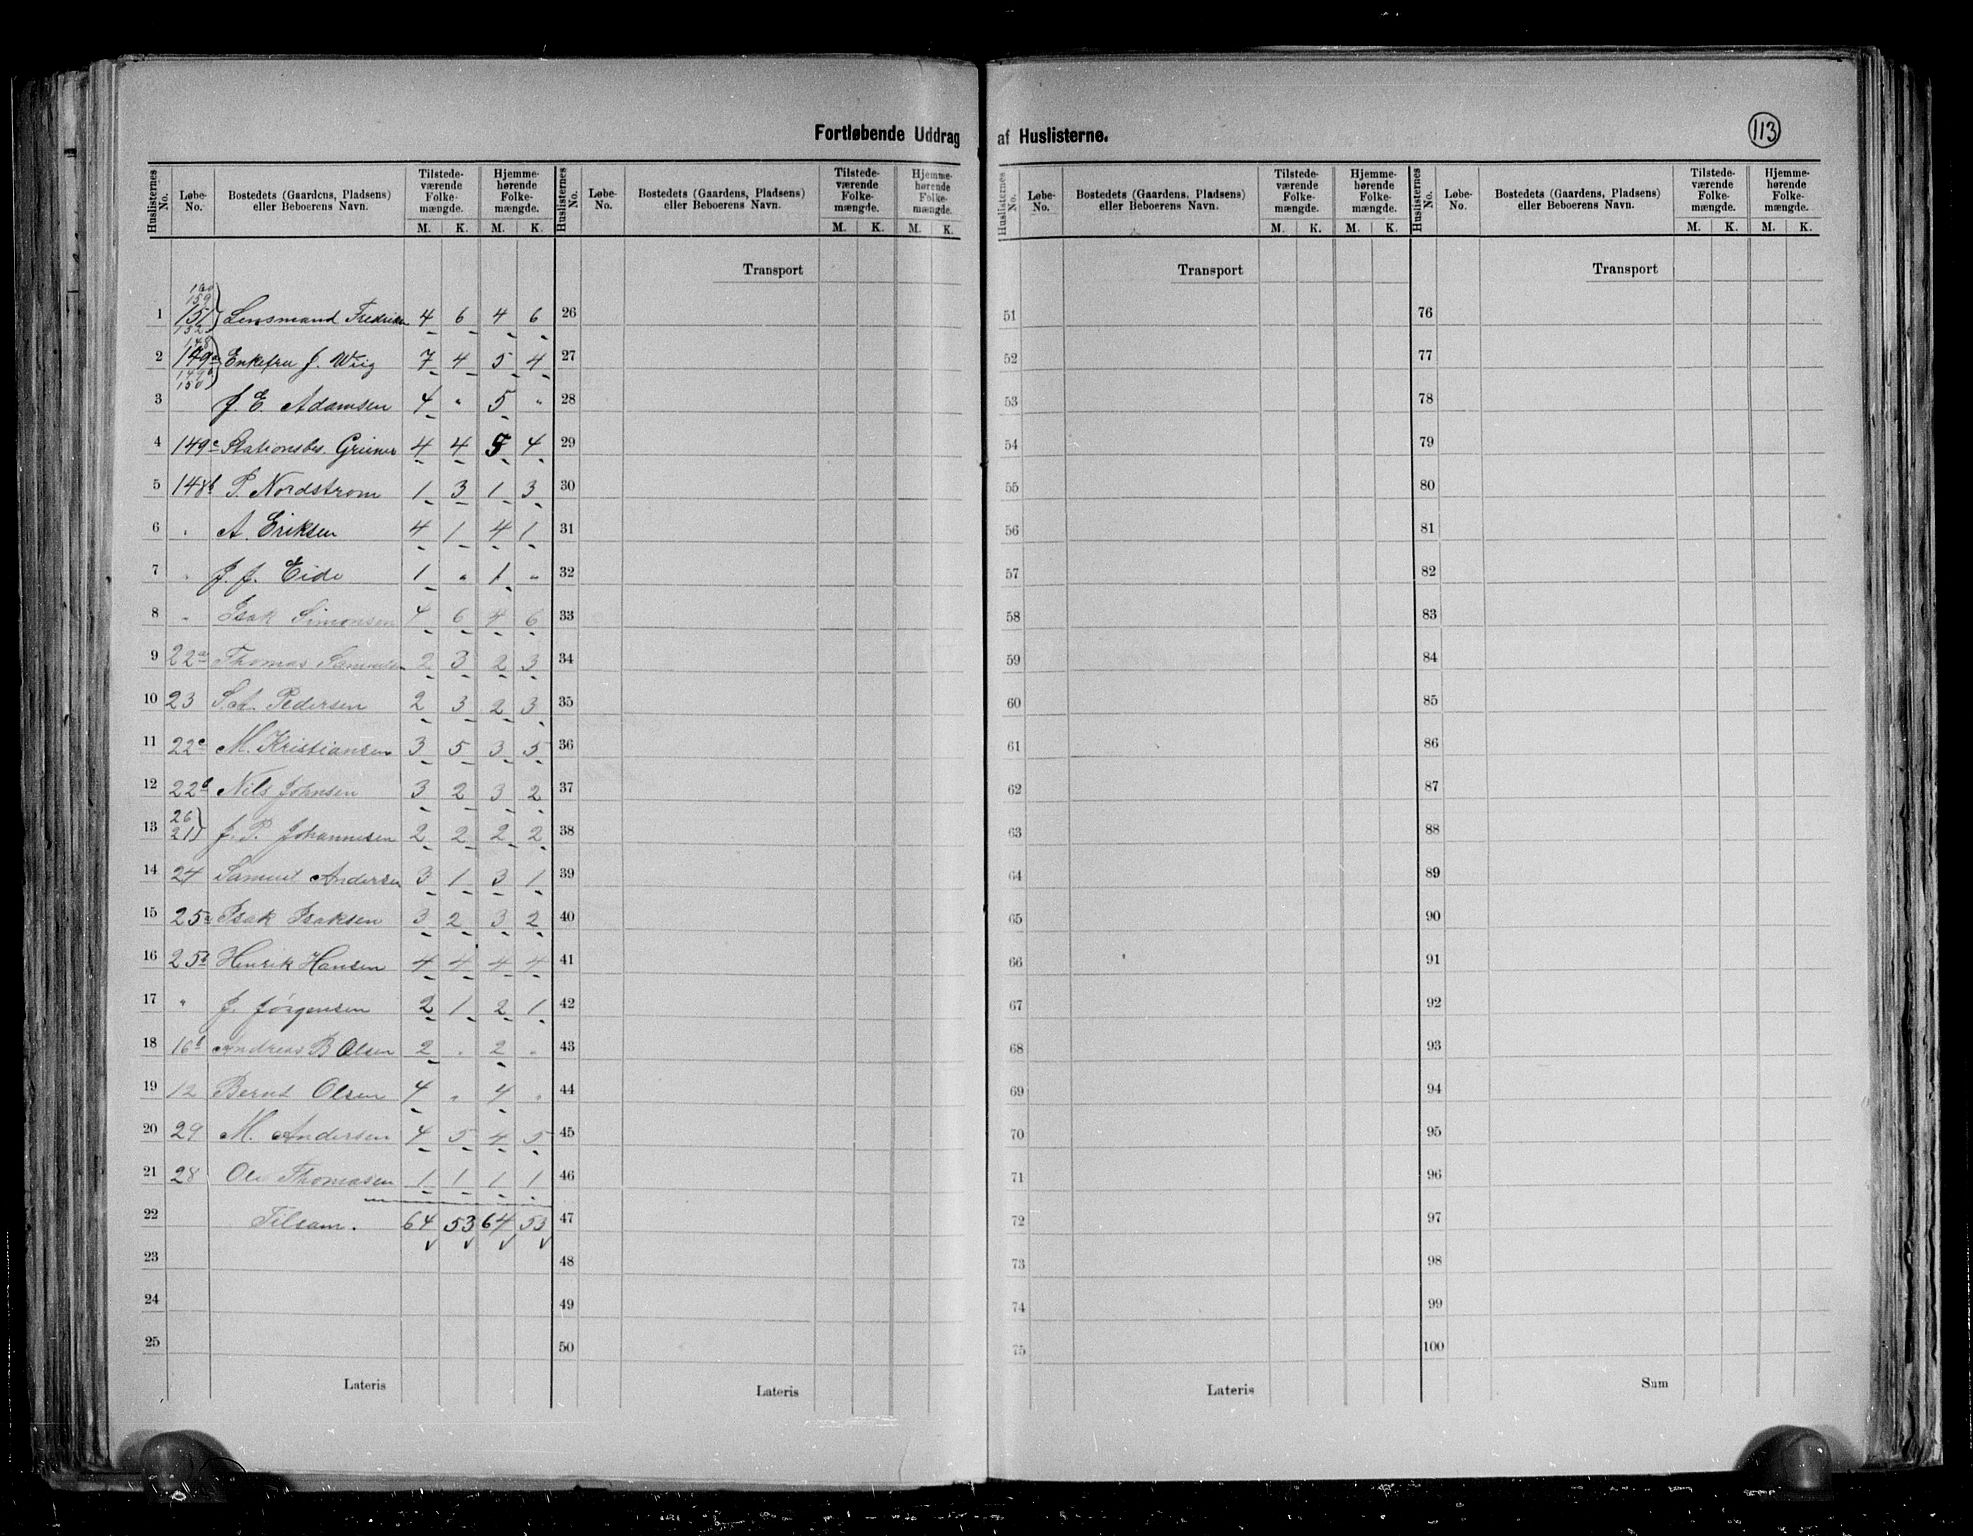 Fortløbende Uddrag af Huslisterne.
113
Huslisternes No. Løbe-No. Bostedets (Gaardens, Pladsens) eller Beboerens Navn. Tilstede-værende Folke-mængde. Hjemme-hørende Folke-mængde.
M. K. M. K.
160
159
1 151 Lensmand Fredriksen 4 6 4 6
152
148
2 149a Enkefru J. Wiig 7 4 5 4
149b
150
3 J. E. Adamsen 4 " 5 "
4 149c Stationsbes. Greiner 4 4 5 4
5 148b P. Nordstrom 1 3 1 3
6 " A. Eriksen 4 1 4 1
7 " J. J. Eide 1 " 1 "
8 " Isak Simonsen 4 6 4 6
9 22a Thomas 2 3 2 3
10 23 Pedersen 2 3 2 3
11 22c M. Kristiansen 3 5 3 5
12 22b Nils Johnsen 3 2 3 2
26
13 21 J. P. Johannesen 2 2 2 2
14 24 Samuel Andersen 3 1 3 1
15 25a Isak Isaksen 3 2 3 2
16 25b Henrik Hansen 4 4 4 4
17 " J. Jørgensen 2 1 2 1
18 16b Andreas B Olsen 2 " 2 "
19 12 Bernt Olsen 4 " 4 "
20 29 M. Andersen 4 5 4 5
21 28 Ole Thomasen 1 1 1 1
22 Tilsam. 64 53 64 53
23
24
25
Lateris
Huslisternes No. Løbe-No. Bostedets (Gaardens, Pladsens) eller Beboerens Navn. Tilstede-værende Folke-mængde. Hjemme-hørende Folke-mængde.
M. K. M. K.
Transport
26
27
28
29
30
31
32
33
34
35
36
37
38
39
40
41
42
43
44
45
46
47
48
49
50
Lateris
Huslisternes No. Løbe-No. Bostedets (Gaardens, Pladsens) eller Beboerens Navn. Tilstede-værende Folke-mængde. Hjemme-hørende Folke-mængde.
M. K. M. K.
Transport
51
52
53
54
55
56
57
58
59
60
61
62
63
64
65
66
67
68
69
70
71
72
73
74
75
Lateris
Huslisternes No. Løbe-No. Bostedets (Gaardens, Pladsens) eller Beboerens Navn. Tilstede-værende Folke-mængde. Hjemme-hørende Folke-mængde.
M. K. M. K.
Transport
76
77
78
79
80
81
82
83
84
85
86
87
88
89
90
91
92
93
94
95
96
97
98
99
100
Sum